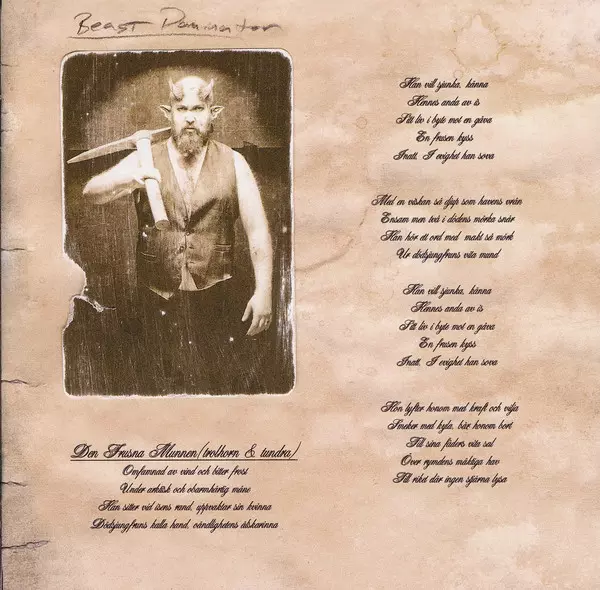 Beast Dominator
Den Frusna Munnen (trolhorn & tundra)
Omfamnad av vind och biter frost
Under arktisk och obarmhärtig måne
Han sitter vid isens rand, uppvaktar sin kvinna
Dödsjungfruns kalla hand, oändlighetens älskarinna
Han vill sjunka, känna
Hennes anda av is
Sitt liv i byte mot en gåva
En frusen kyss
Inatt, I evighet han sova
Med en viskan så djup som havens vrån
Ensam men två i dödens mörka snår
Han hör ett ord med makt så mörk
Ur dödsjungfruns vita mund
Han vill sjunka, känna
Hennes anda av is
Sitt liv i byte mot en gåva
En frusen kyss
Inatt, I evighet han sova
Hon lyfter honom med kraft och vilja
Smeker med kyla, bär honom bort
Till sina fäders vita sal
Over rymdens mäktiga hav
Till riket där ingen stjärna lysa